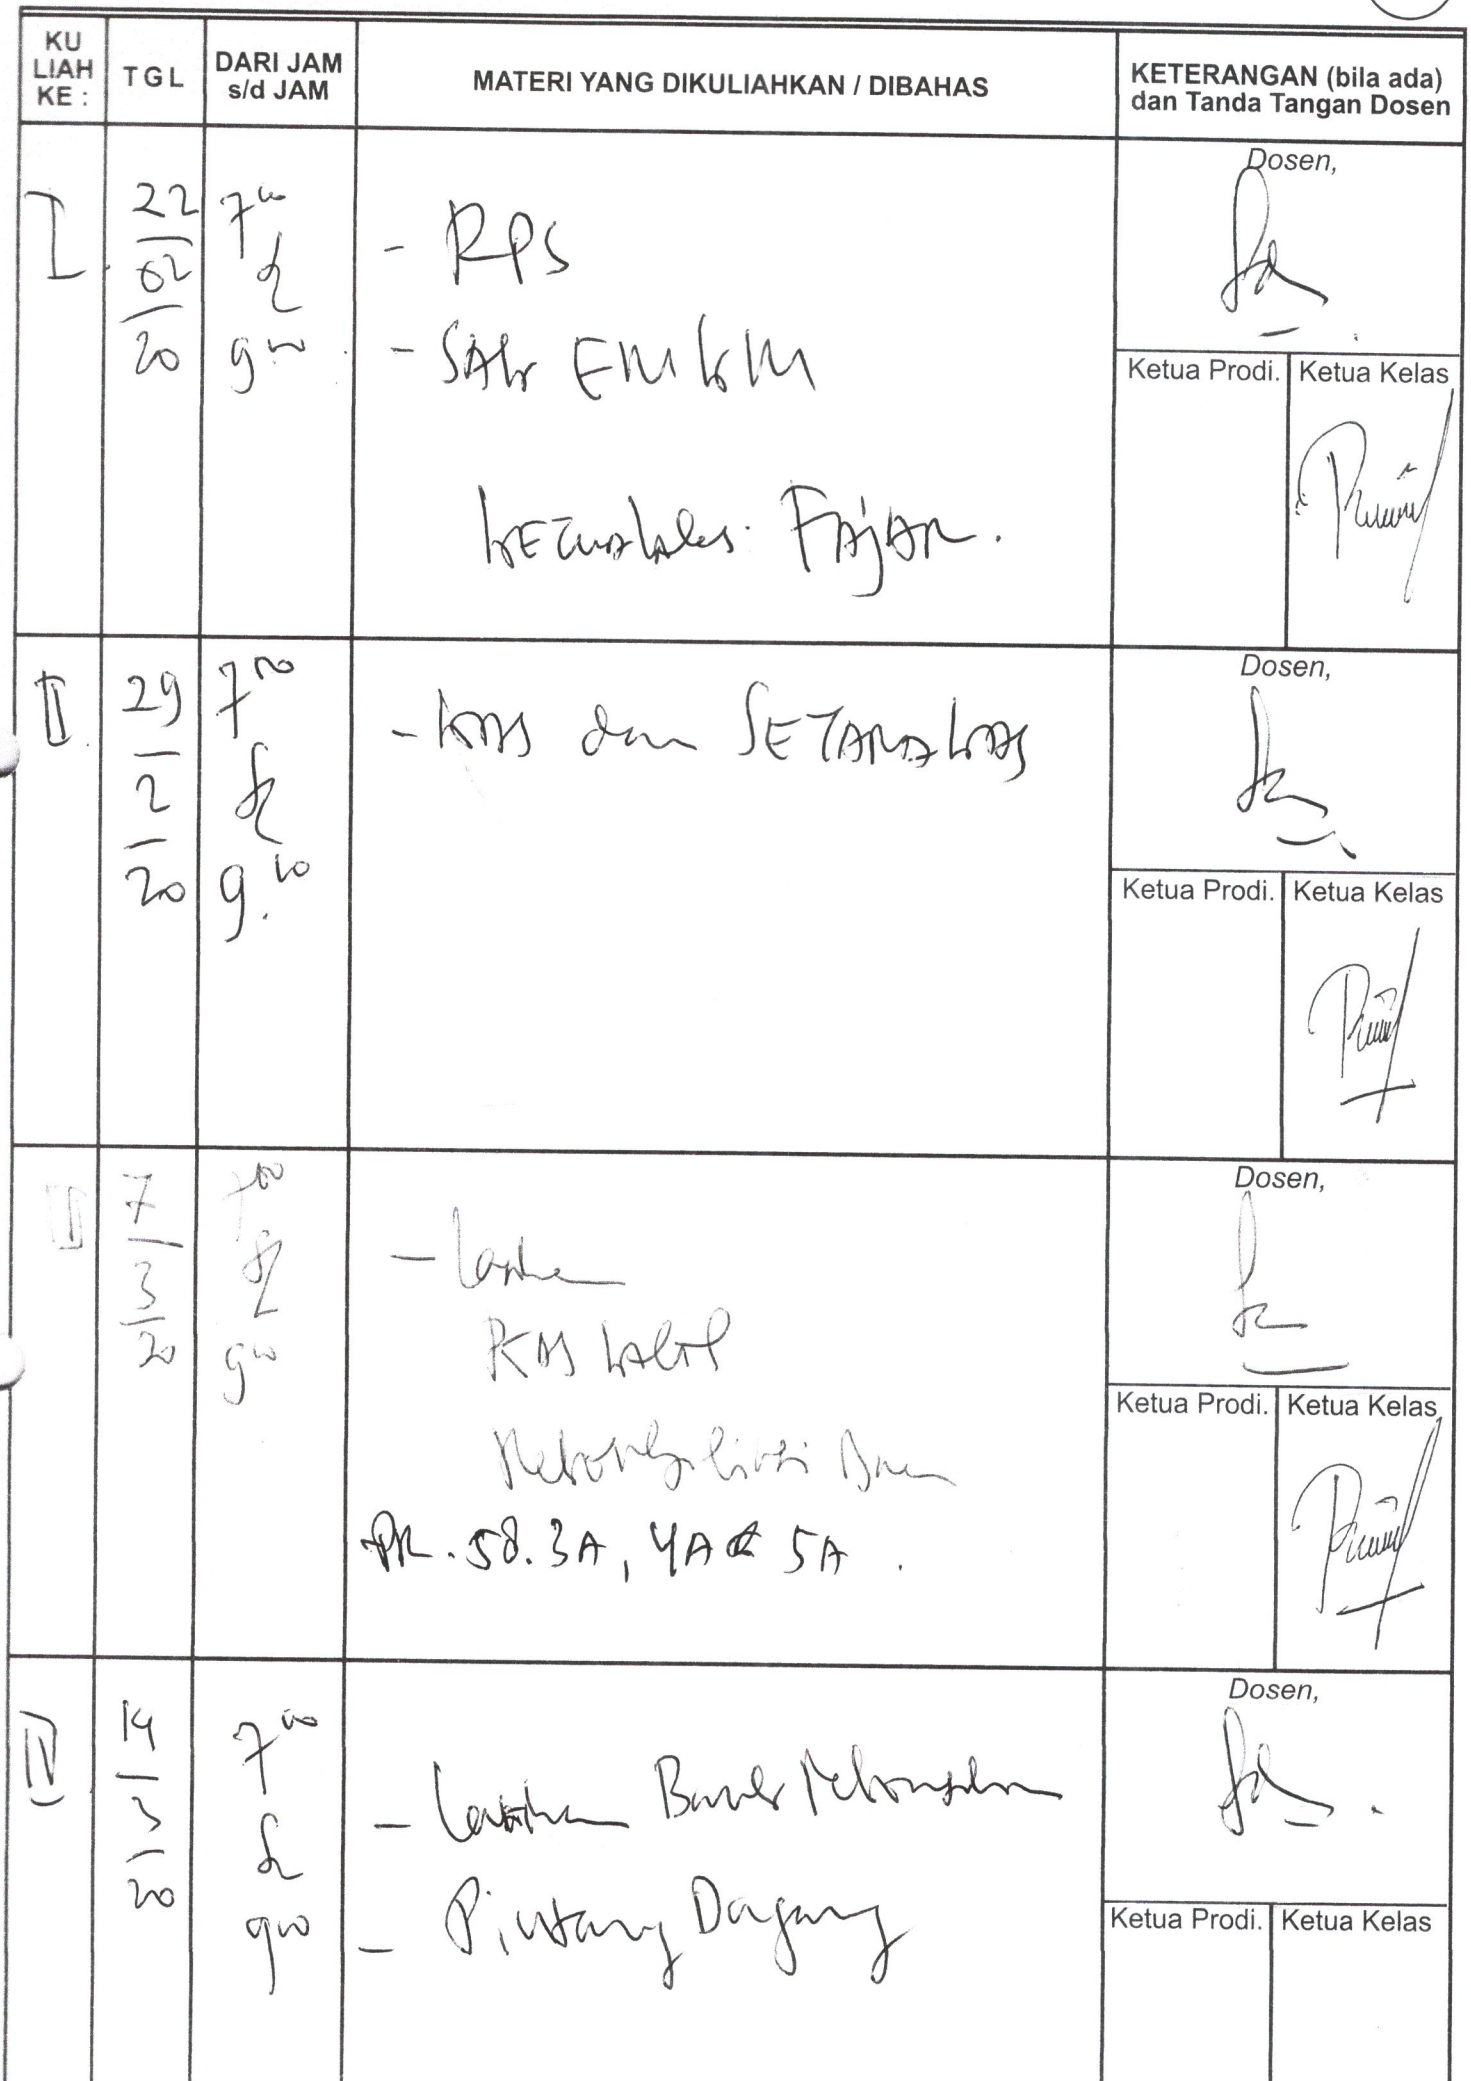 KU LIAH KE :
TGL
DARI JAM s/d JAM
MATERI YANG DIKULIAHKAN / DIBAHAS
KETERANGAN (bila ada) dan Tanda Tangan Dosen
I
22/02/20
7⁰⁰
9⁰⁰
- RPS
- SAK EMKM
KETUA Kelas: FAJAR.
Dosen,
Ketua Prodi.
Ketua Kelas
II
29/2/20
7⁰⁰
9.⁰⁰
- KAS dan SETARA KAS
Dosen,
Ketua Prodi.
Ketua Kelas
III
7/3/20
7⁰⁰
9⁰⁰
- Latihan
KAS kecil
Rekonsiliasi Bank
PR. 58. 3A, 4A & 5A.
Dosen,
Ketua Prodi.
Ketua Kelas
IV
14/3/20
7⁰⁰
9⁰⁰
- Latihan Bank
- Piutang Dagang
Dosen,
Ketua Prodi.
Ketua Kelas